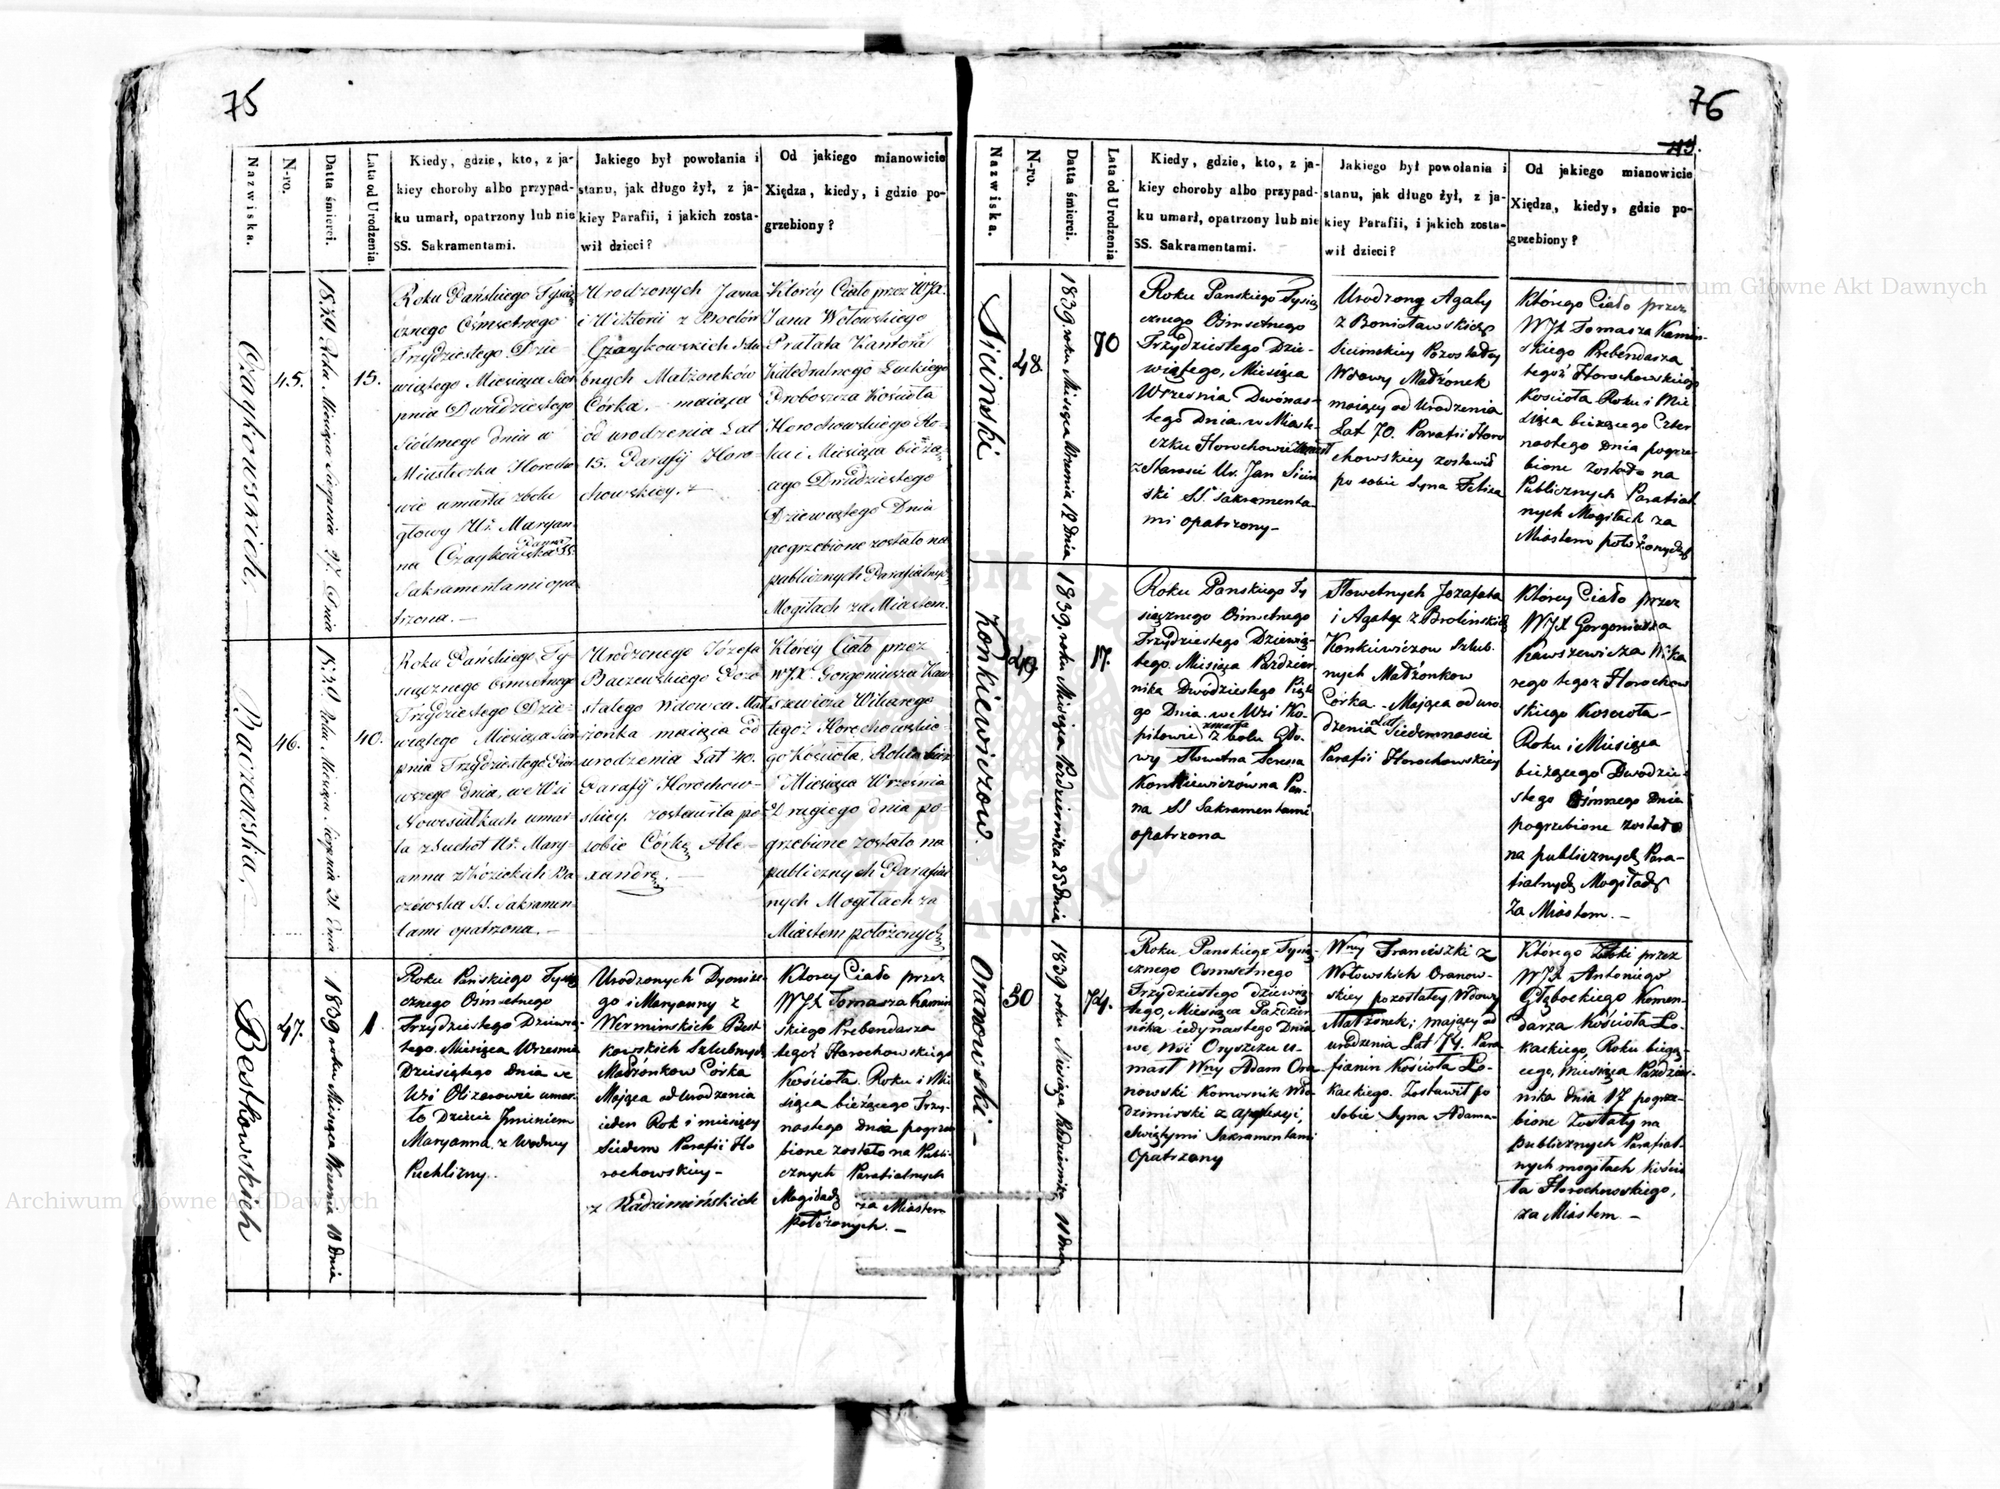 75
Nazwiska.
N-ro.
Datta śmierci.
Lata od Urodzenia.
Kiedy, gdzie, kto, z ja-
kiey choroby albo przypad-
ku umarł, opatrzony lub nie
SS. Sakramentami.
Jakiego był powołania i
stanu, jak długo żył, z ja-
kiey Parafii, i jakich zosta-
wił dzieci?
Od jakiego mianowicie
Xiędza, kiedy, i gdzie po-
grzebiony?
Czaykowskich.
45.
1839 Roku Miesiąca Sierpnia 27. Dnia
15.
Roku Pańskiego Tysią
cznego Ośmsetnego
Trzydziestego Dzie-
wiątego Miesiąca Sier
pnia Dwudziestego
Siódmego dnia w
Miasteczku Horocho
wie umarła z bolu
głowy Ur. Maryan-
na Czaykowska Panna SS.
Sakramentami opa
trzona.
Urodzonych Jana
i Wiktorii z
Czaykowskich Szlu
bnych Małżonków
Córka. maiąca
od urodzenia Lat
15. Parafij Horo-
chowskiey.
Którey Ciało przez WJX.
Jana Wołowskiego
Prałata Kantora
Katedralnego Łuckiego
Proboszcza Kościoła
Horochowskiego Ro-
ku i Miesiąca bieżą
cego Dwudziestego
Dziewiątego Dnia
pogrzebione zostało na
publicznych Parafialnych
Mogiłach za Miastem.
Baczewska,
46.
1839. Roku Miesiąca Sierpnia 31 Dnia
40.
Roku Pańskiego Ty-
siącznego Ośmsetnego
Trzydziestego Dzie-
wiątego Miesiąca Sier
pnia Trzydziestego Pier
wszego dnia, we Wsi
Nowosiułkach umar-
ła z Suchot Ur. Mary-
anna z Ba
czewska SS. Sakramen-
tami opatrzona.
Urodzonego Józefa
Baczewskiego Pozo
stałego Wdowca Mał
żonka maiąca od
urodzenia Lat 40.
Parafij Horochow-
skiey. zostawiła po
sobie Córkę Ale-
xandrę.
Którey Ciało przez
WJX Gorgoniusza Raw
szewicza Wikarego
tegoż Horochowskie-
go Kościoła, Roku bież
Miesiąca Września
Drugiego dnia po-
grzebione zostało na
publicznych Parafial
nych Mogiłach za
Miastem położonych.
Bestkowskich
47.
1839 roku Miesiąca Września 10 dnia
1.
Roku Pańskiego Tysią
cznego Ośmsetnego
Trzydziestego Dziewią-
tego Miesiąca Wrzesnia
Dziesiątego dnia we
Wsi Olizarowie umar-
ło Dziecie Jmieniem
Maryanna z Wodney
Puchliny.
Urodzonych Dyonize-
go i Maryanny z
Werminskich Best
kowskich Szlubnych
Małżonkow Córka
Mająca od Urodzenia
ieden Rok i miesięcy
Siedem Parafii Ho
rochowskiey-
z Radzimińskich
Ktorey Ciało przez
WJX Tomasza Kamin
skiego Prebendarza
tegoż Horochowskiego
Kościoła. Roku i Mi
siąca bieżącego Trzy-
nastego Dnia pogrze
bione zostało na Publi-
cznych Parafialnych
Mogiłach za Miastem
położonych.
76
113.
Nazwiska.
N-ro.
Datta śmierci.
Lata od Urodzenia
Kiedy, gdzie, kto, z ja-
kiey choroby albo przypad-
ku umarł, opatrzony lub nie
SS. Sakramentami.
Jakiego był powołania i
stanu, jak długo żył, z ja-
kiey Parafii, i jakich zosta-
wił dzieci?
Od jakiego mianowicie
Xiędza, kiedy, gdzie po-
grzebiony?
Siciński
48
1839. roku Miesiąca Wrzesnia 12 dnia
70
Roku Panskiego Tysią
cznego Ośmsetnego
Trzydziestego Dzie-
wiątego, Miesiąca
Wrzesnia Dwónas-
tego Dnia. w Miaste-
czku Horochowie umarł
z Starosci Ur. Jan Sicin
ski SS Sakramenta-
mi opatrzony-
Urodzoney Agaty
z Bonisławskich
Sicinskiey Pozostałey
Wdowy Małżonek
maiący od Urodzenia
Lat 70. Parafii Horo
chowskiey zostawił
po sobie Syna Felixa
Którego Ciało przez
WJX Tomasza Kamin-
skiego Prebendarza
tegoż Horochowskiego
Kościoła Roku i Mie
siąca bieżącego Czter
nastego Dnia pogrze-
bione zostało na
Publicznych Parafial
nych Mogiłach za
Miastem położonych
Konkiewiczow.
49
1839. roku Miesiąca Pazdziernika 25 dnia
17.
Roku Panskiego Ty
siącznego Ośmsetnego
Trzydziestego Dziewią-
tego Miesiąca Pazdzier
nika Dwódziestego Pią
go Dnia we Wsi Ko-
pitowie zmarła z bolu Gło-
wy Sławetna Teresa
Konkiewiczówna Pan-
na SS Sakramentami
opatrzona
Sławetnych Jozafata
i Agaty z Brolinskich
Konkiewiczow Szlub-
nych Małżonkow
Córka - Mająca od uro
dzenia Lat Siedemnascie
Parafii Horochowskiey
Którey Ciało przez
WJX Gorgoniusza
Rawszewicza Wika
rego tegoż Horochow
skiego Kosciola-
Roku i Miesiąca
bieżącego Dwodzie-
stego Osmego Dnia
pogrzebione zostało
na publicznych Para-
fialnych Mogiłach
Za Miastem.-
Oranowski-
50
1839 roku Miesiąca Pazdziernika 11 dnia
74.
Roku Panskiego Tysią-
cznego Osmsetnego
Trzydziestego dziewią
tego, Miesiąca Pazdzier
nika iedynastego Dnia
we Wsi Oryszczu u-
marł Wny Adam Ora
nowski Komornik Wło
dzimirski z apoplexyi,
Swiętymi Sakramentami
Opatrzony
Wney Franciszki z
Wołowskich Oranow-
skiey pozostałey Wdowy
Małżonek; maiący od
urodzenia Lat 74. Para
fianin Kościoła Ło-
kackiego. Zostawił po
Sobie Syna Adama-
Którego Zwłoki przez
WJX Antoniego
Głębockiego Komen-
darza Kościoła Ło-
kackiego, Roku bieżą-
cego, Miesiąca Pazdzier-
nika dnia 17 pogrze-
bione Zostały na
publicznych Parafial-
nych mogiłach kościo
ła Horochowskiego,
za Miastem -
Archiwum Główne Akt Dawnych
Archiwum Główne Akt Dawnych